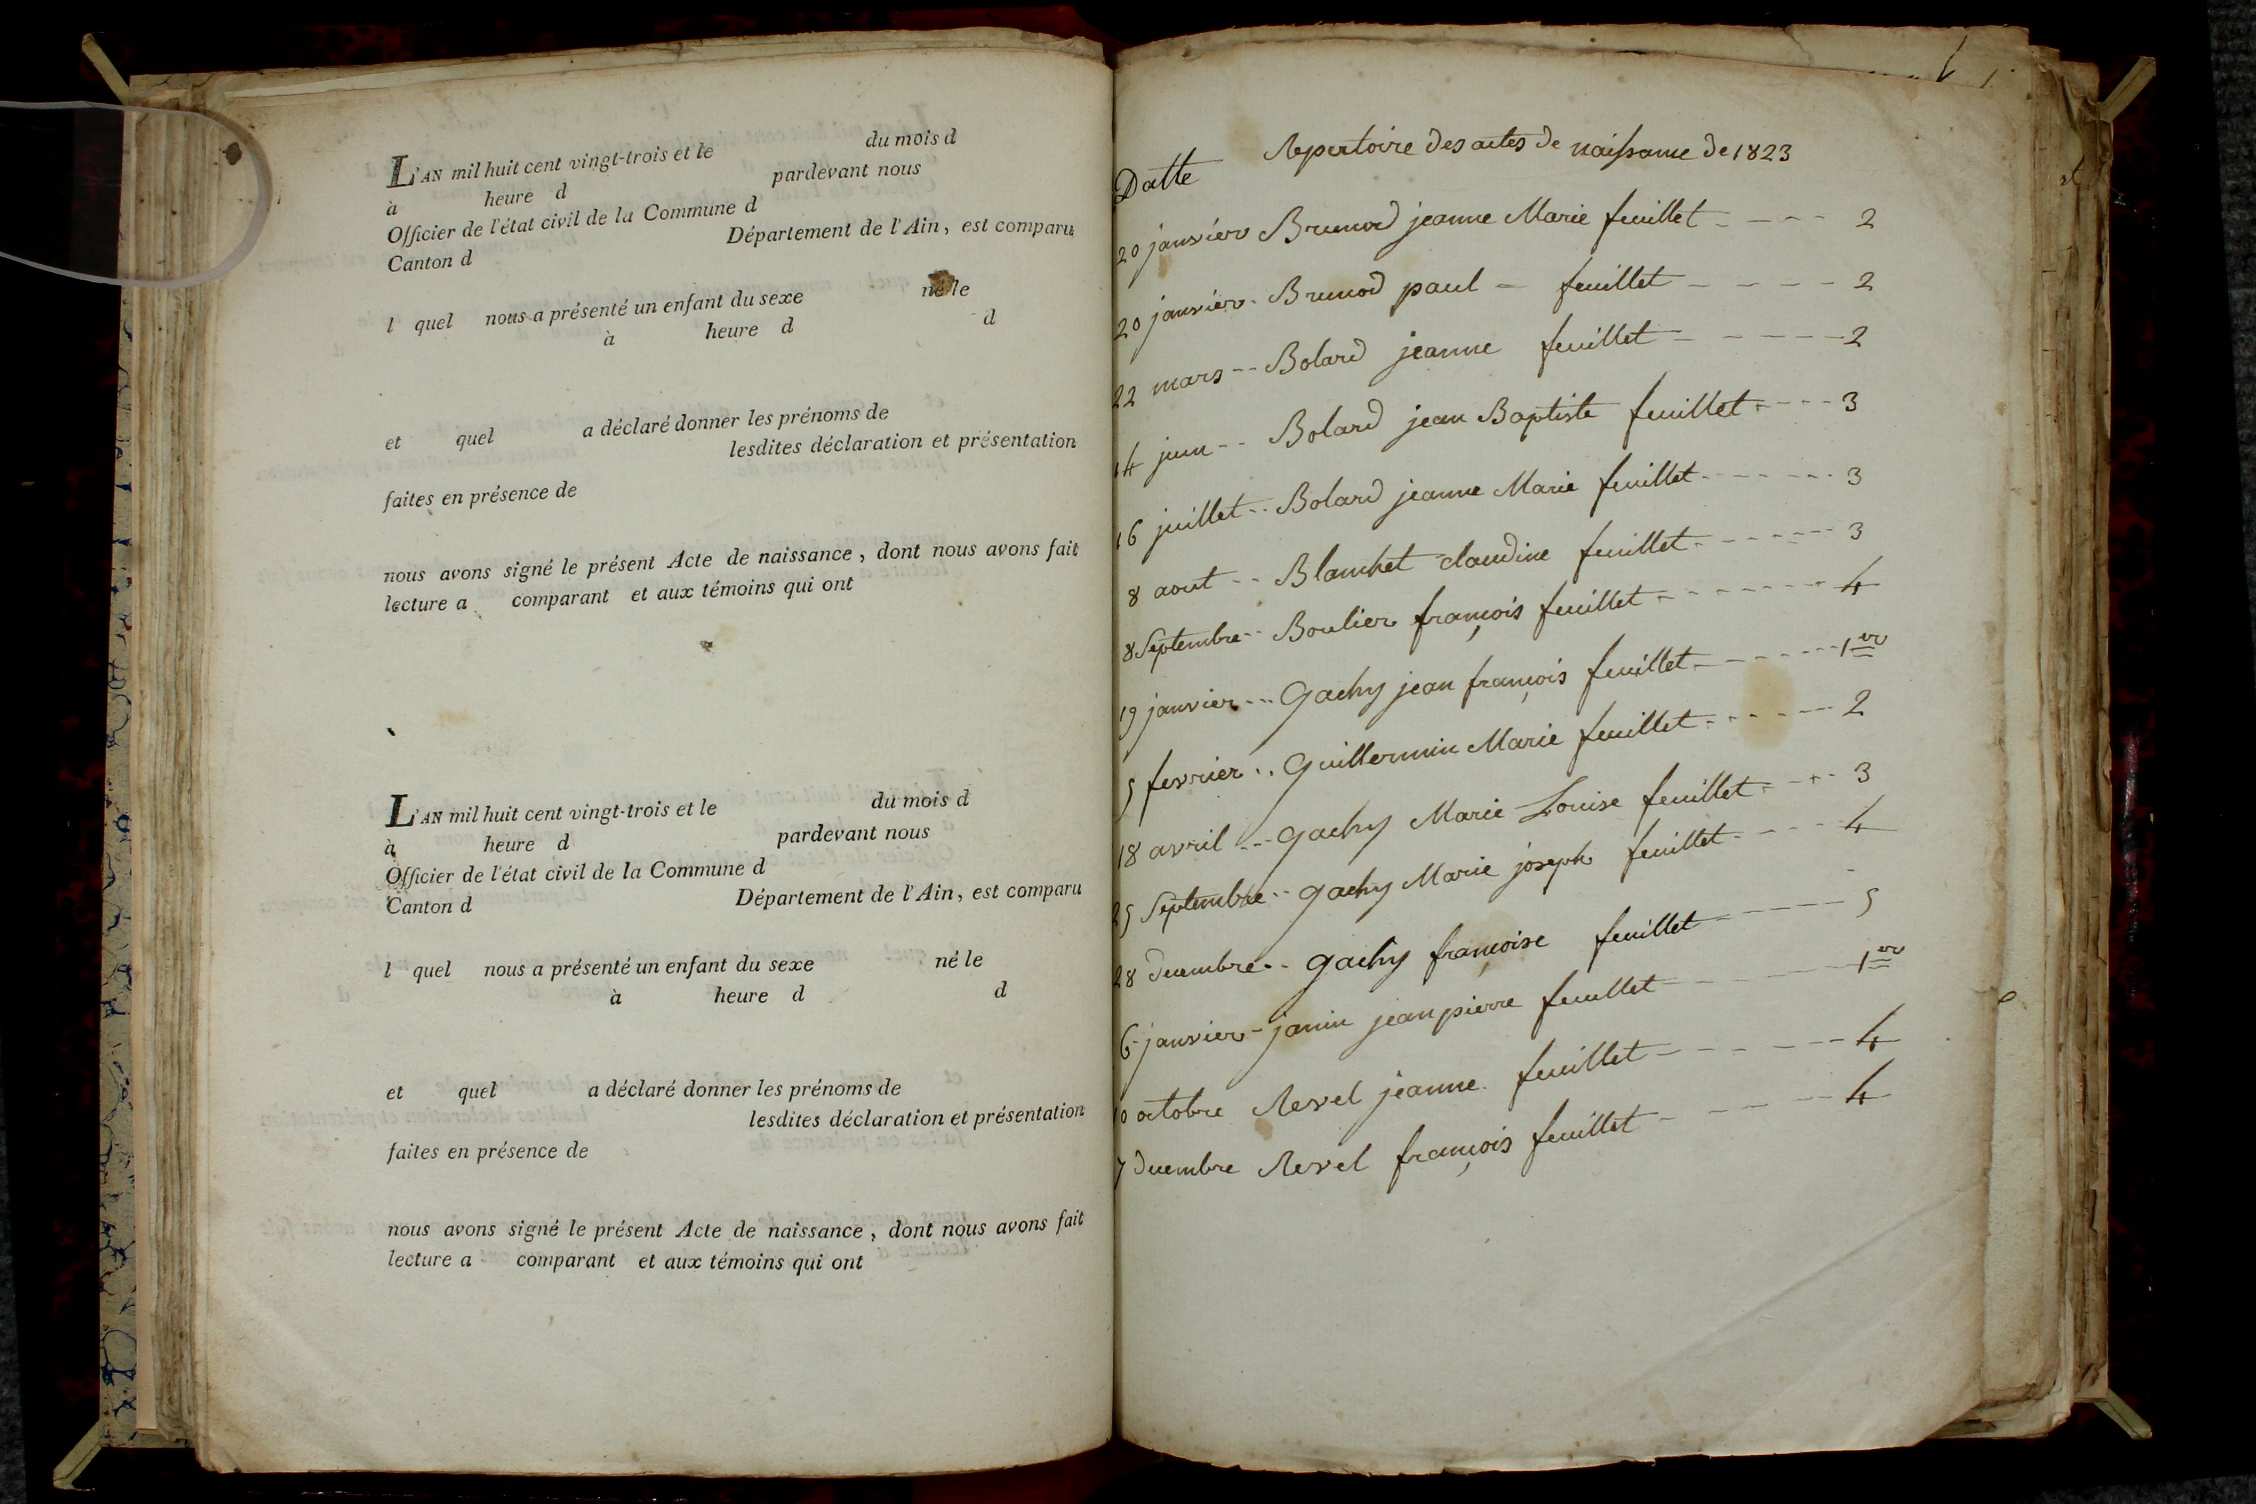 L'AN mil huit cent vingt-trois et le du mois d
à heure d pardevant nous
Officier de l'état civil de la Commune d
Canton d Département de l'Ain, est comparu
l quel nous a présenté un enfant du sexe né le
à heure d d
et quel a déclaré donner les prénoms de
lesdites déclaration et présentation
faites en présence de
nous avons signé le présent Acte de naissance, dont nous avons fait
lecture a comparant et aux témoins qui ont
L'AN mil huit cent vingt-trois et le du mois d
à heure d pardevant nous
Officier de l'état civil de la Commune d
Canton d Département de l'Ain, est comparu
l quel nous a présenté un enfant du sexe né le
à heure d d
et quel a déclaré donner les prénoms de
lesdites déclaration et présentation
faites en présence de
nous avons signé le présent Acte de naissance, dont nous avons fait
lecture a comparant et aux témoins qui ont
Repertoire des actes de naissance de 1823
Datte
20 janvier Brunod jeanne Marie feuillet - - - - 2
20 janvier - Brunod paul - feuillet - - - - 2
22 mars -- Bolard jeanne feuillet - - - - - 2
14 juin -- Bolard jean Baptiste feuillet - - - - 3
16 juillet -- Bolard jeanne Marie feuillet - - - - - - 3
8 aout -- Blanchet claudine feuillet - - - - - - 3
8 Septembre -- Boulier françois feuillet - - - - - - - 4
19 janvier --- gachy jean françois feuillet - - - - - - 1er
5 fevrier -- guillermin Marie feuillet - - - - - - 2
18 avril --- gachy Marie Louise feuillet - - - - 3
25 Septembre -- gachy Marie joseph feuillet - - - - - 4
28 decembre -- gachy françoise feuillet - - - - - 5
6 janvier - janin jean pierre feuillet - - - - - 1er
10 octobre Revel jeanne feuillet - - - - - - 4
7 decembre Revel françois feuillet - - - - - 4